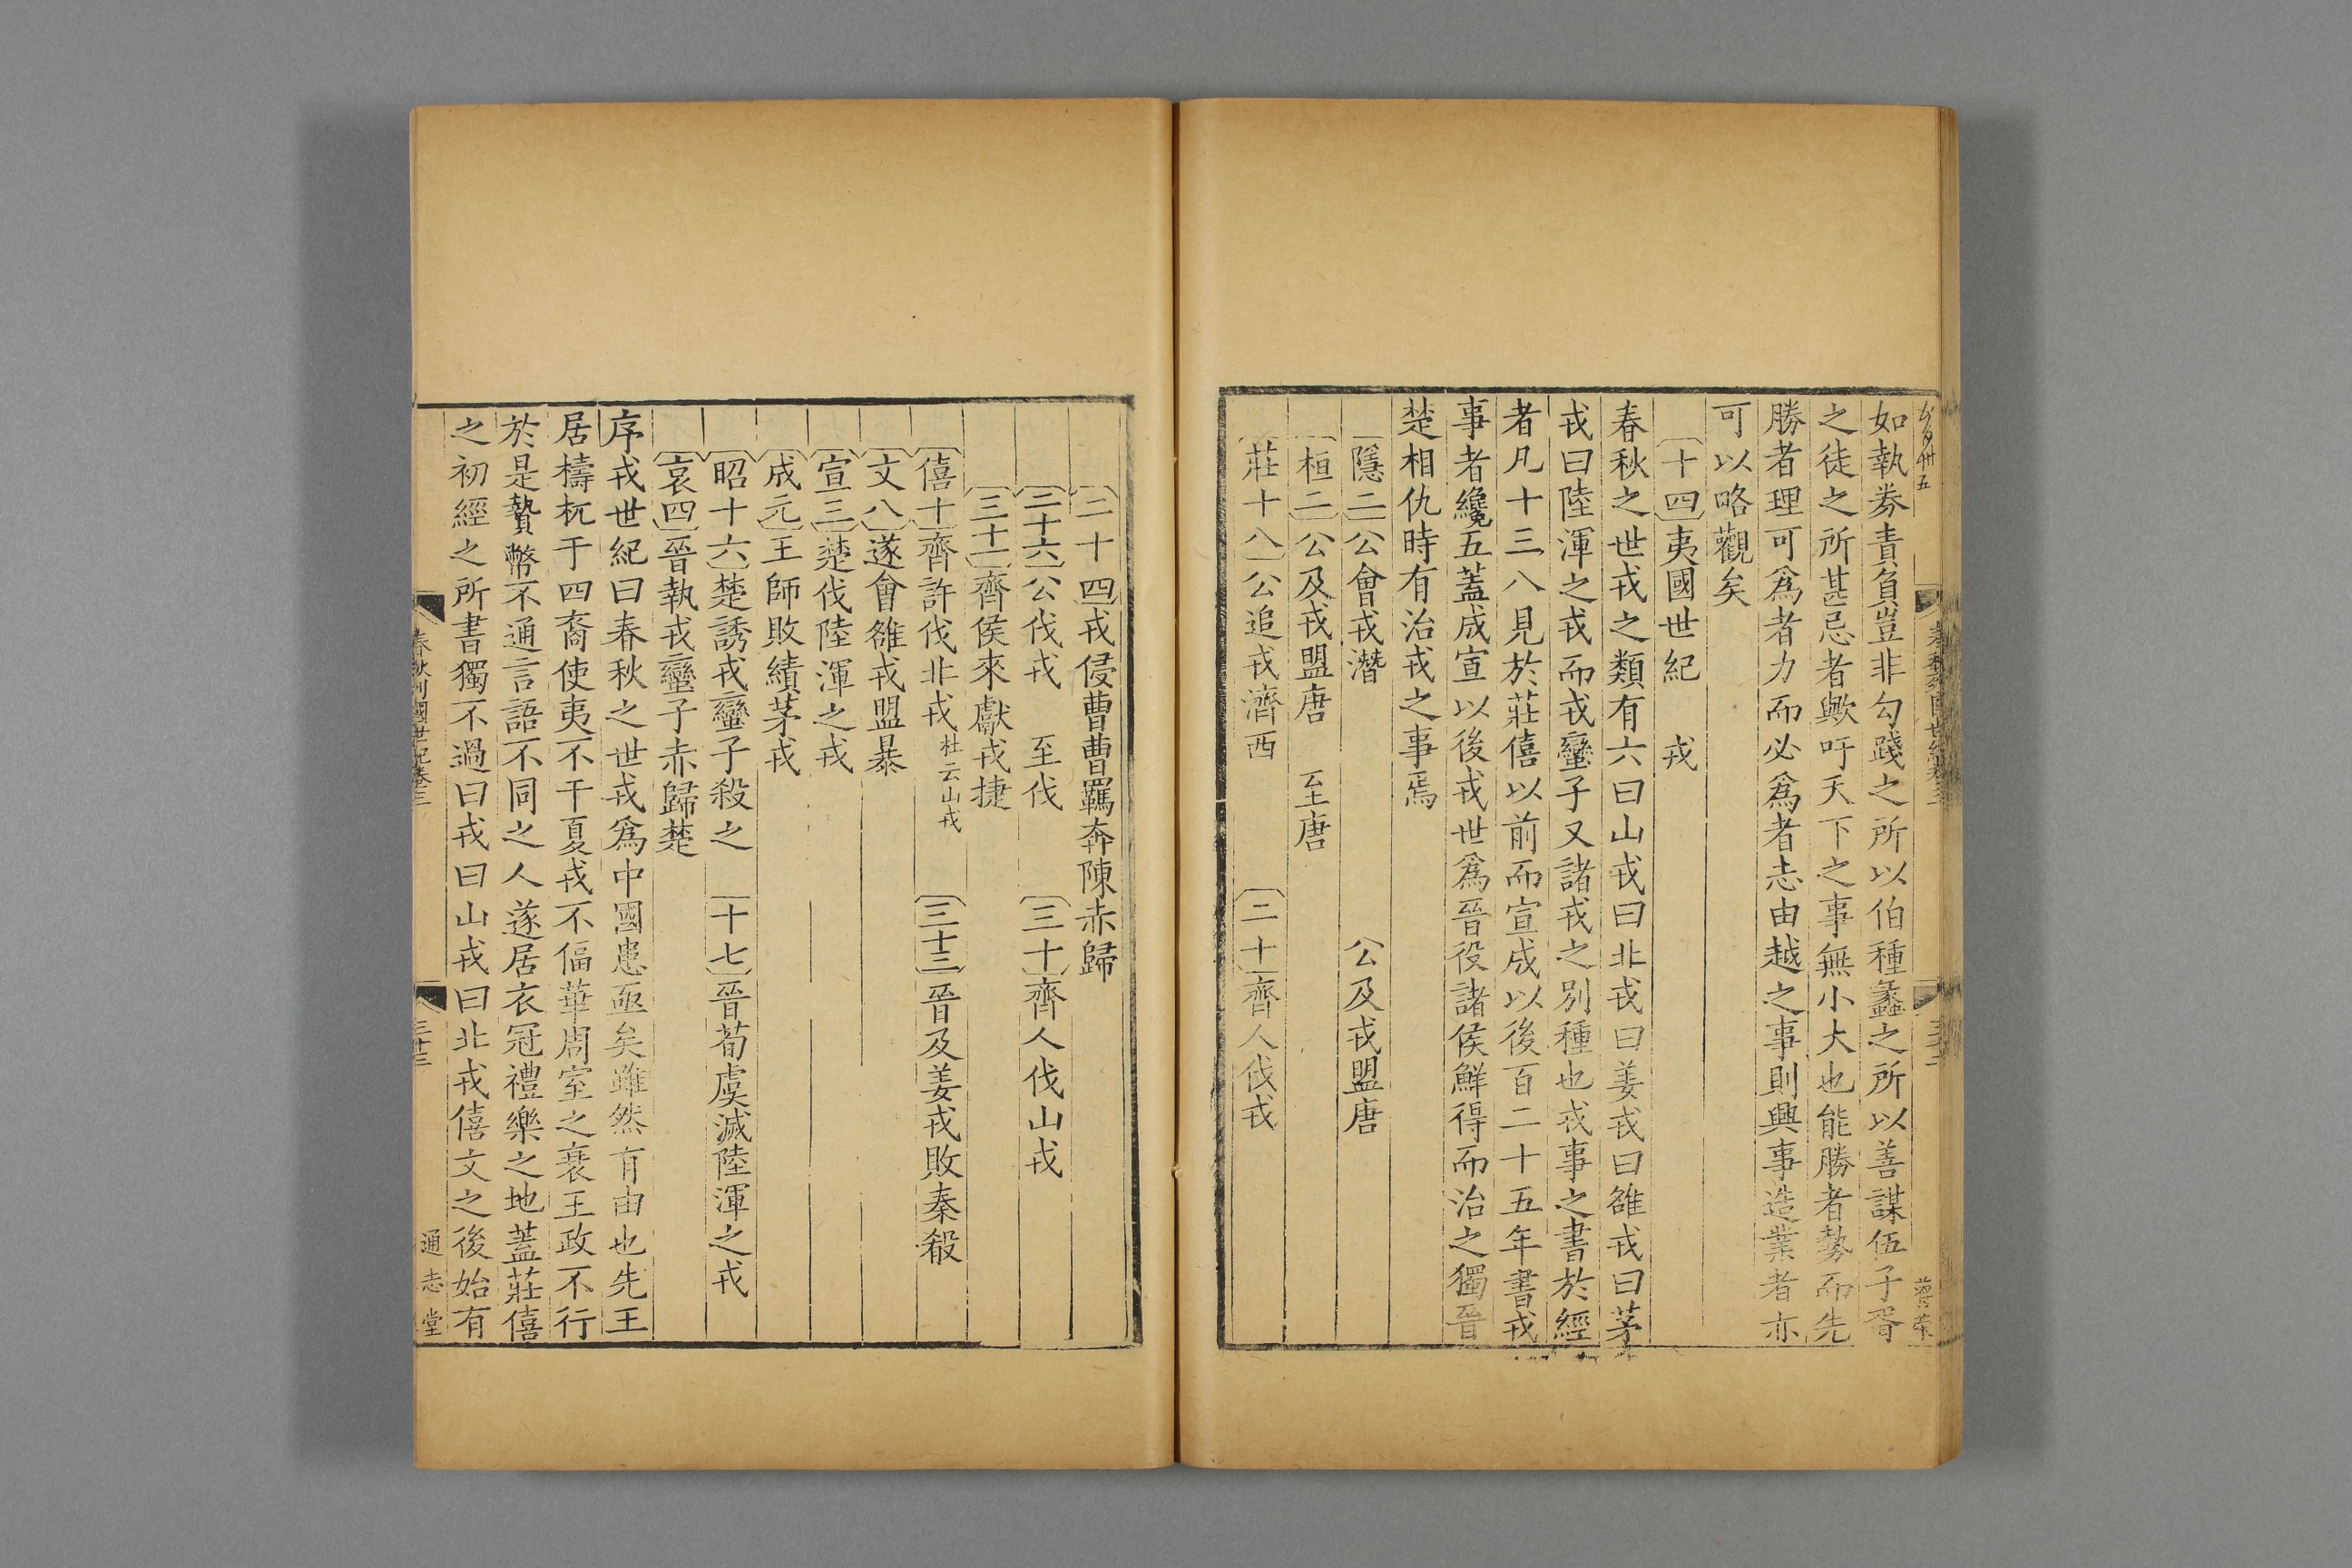 如執券責負豈非勾踐之所以伯種蠡之所以善謀伍子胥
之徒之所甚忌者歟吁天下之事無小大也能勝者勢而先
勝者理可爲者力而必爲者志由越之事則興事造業者亦
可以略觀矣
十四夷國世紀 戎
春秋之世戎之類有六曰山戎曰北戎曰姜戎曰雒戎曰茅
戎曰陸渾之戎而戎蠻子又諸戎之別種也戎事之書於經
者凡十三八見於莊僖以前而宣成以後百二十五年書戎
事者纔五蓋成宣以後戎世爲晉役諸侯鮮得而治之獨晉
楚相仇時有治戎之事焉
隱二公會戎潛 公及戎盟唐
桓二公及戎盟唐 至唐
莊十八公追戎濟西 二十齊人伐戎
二十四戎侵曹曹羈奔陳赤歸
二十六公伐戎 至伐 三十齊人伐山戎
三十一齊侯來獻戎捷
僖十齊許伐北戎杜云山戎 三十三晉及姜戎敗秦殽
文八遂會雒戎盟暴
宣三楚伐陸渾之戎
成元王師敗績茅戎
昭十六楚誘戎蠻子殺之 十七晉荀虞滅陸渾之戎
哀四晉執戎蠻子赤歸楚
序戎世紀曰春秋之世戎爲中國患亟矣雖然有由也先王
居檮杌于四裔使夷不干夏戎不偪華周室之衰王政不行
於是贄幣不通言語不同之人遂居衣冠禮樂之地蓋莊僖
之初經之所書獨不過曰戎曰山戎曰北戎僖文之後始有
春秋列國世紀卷三 三十三 通志堂